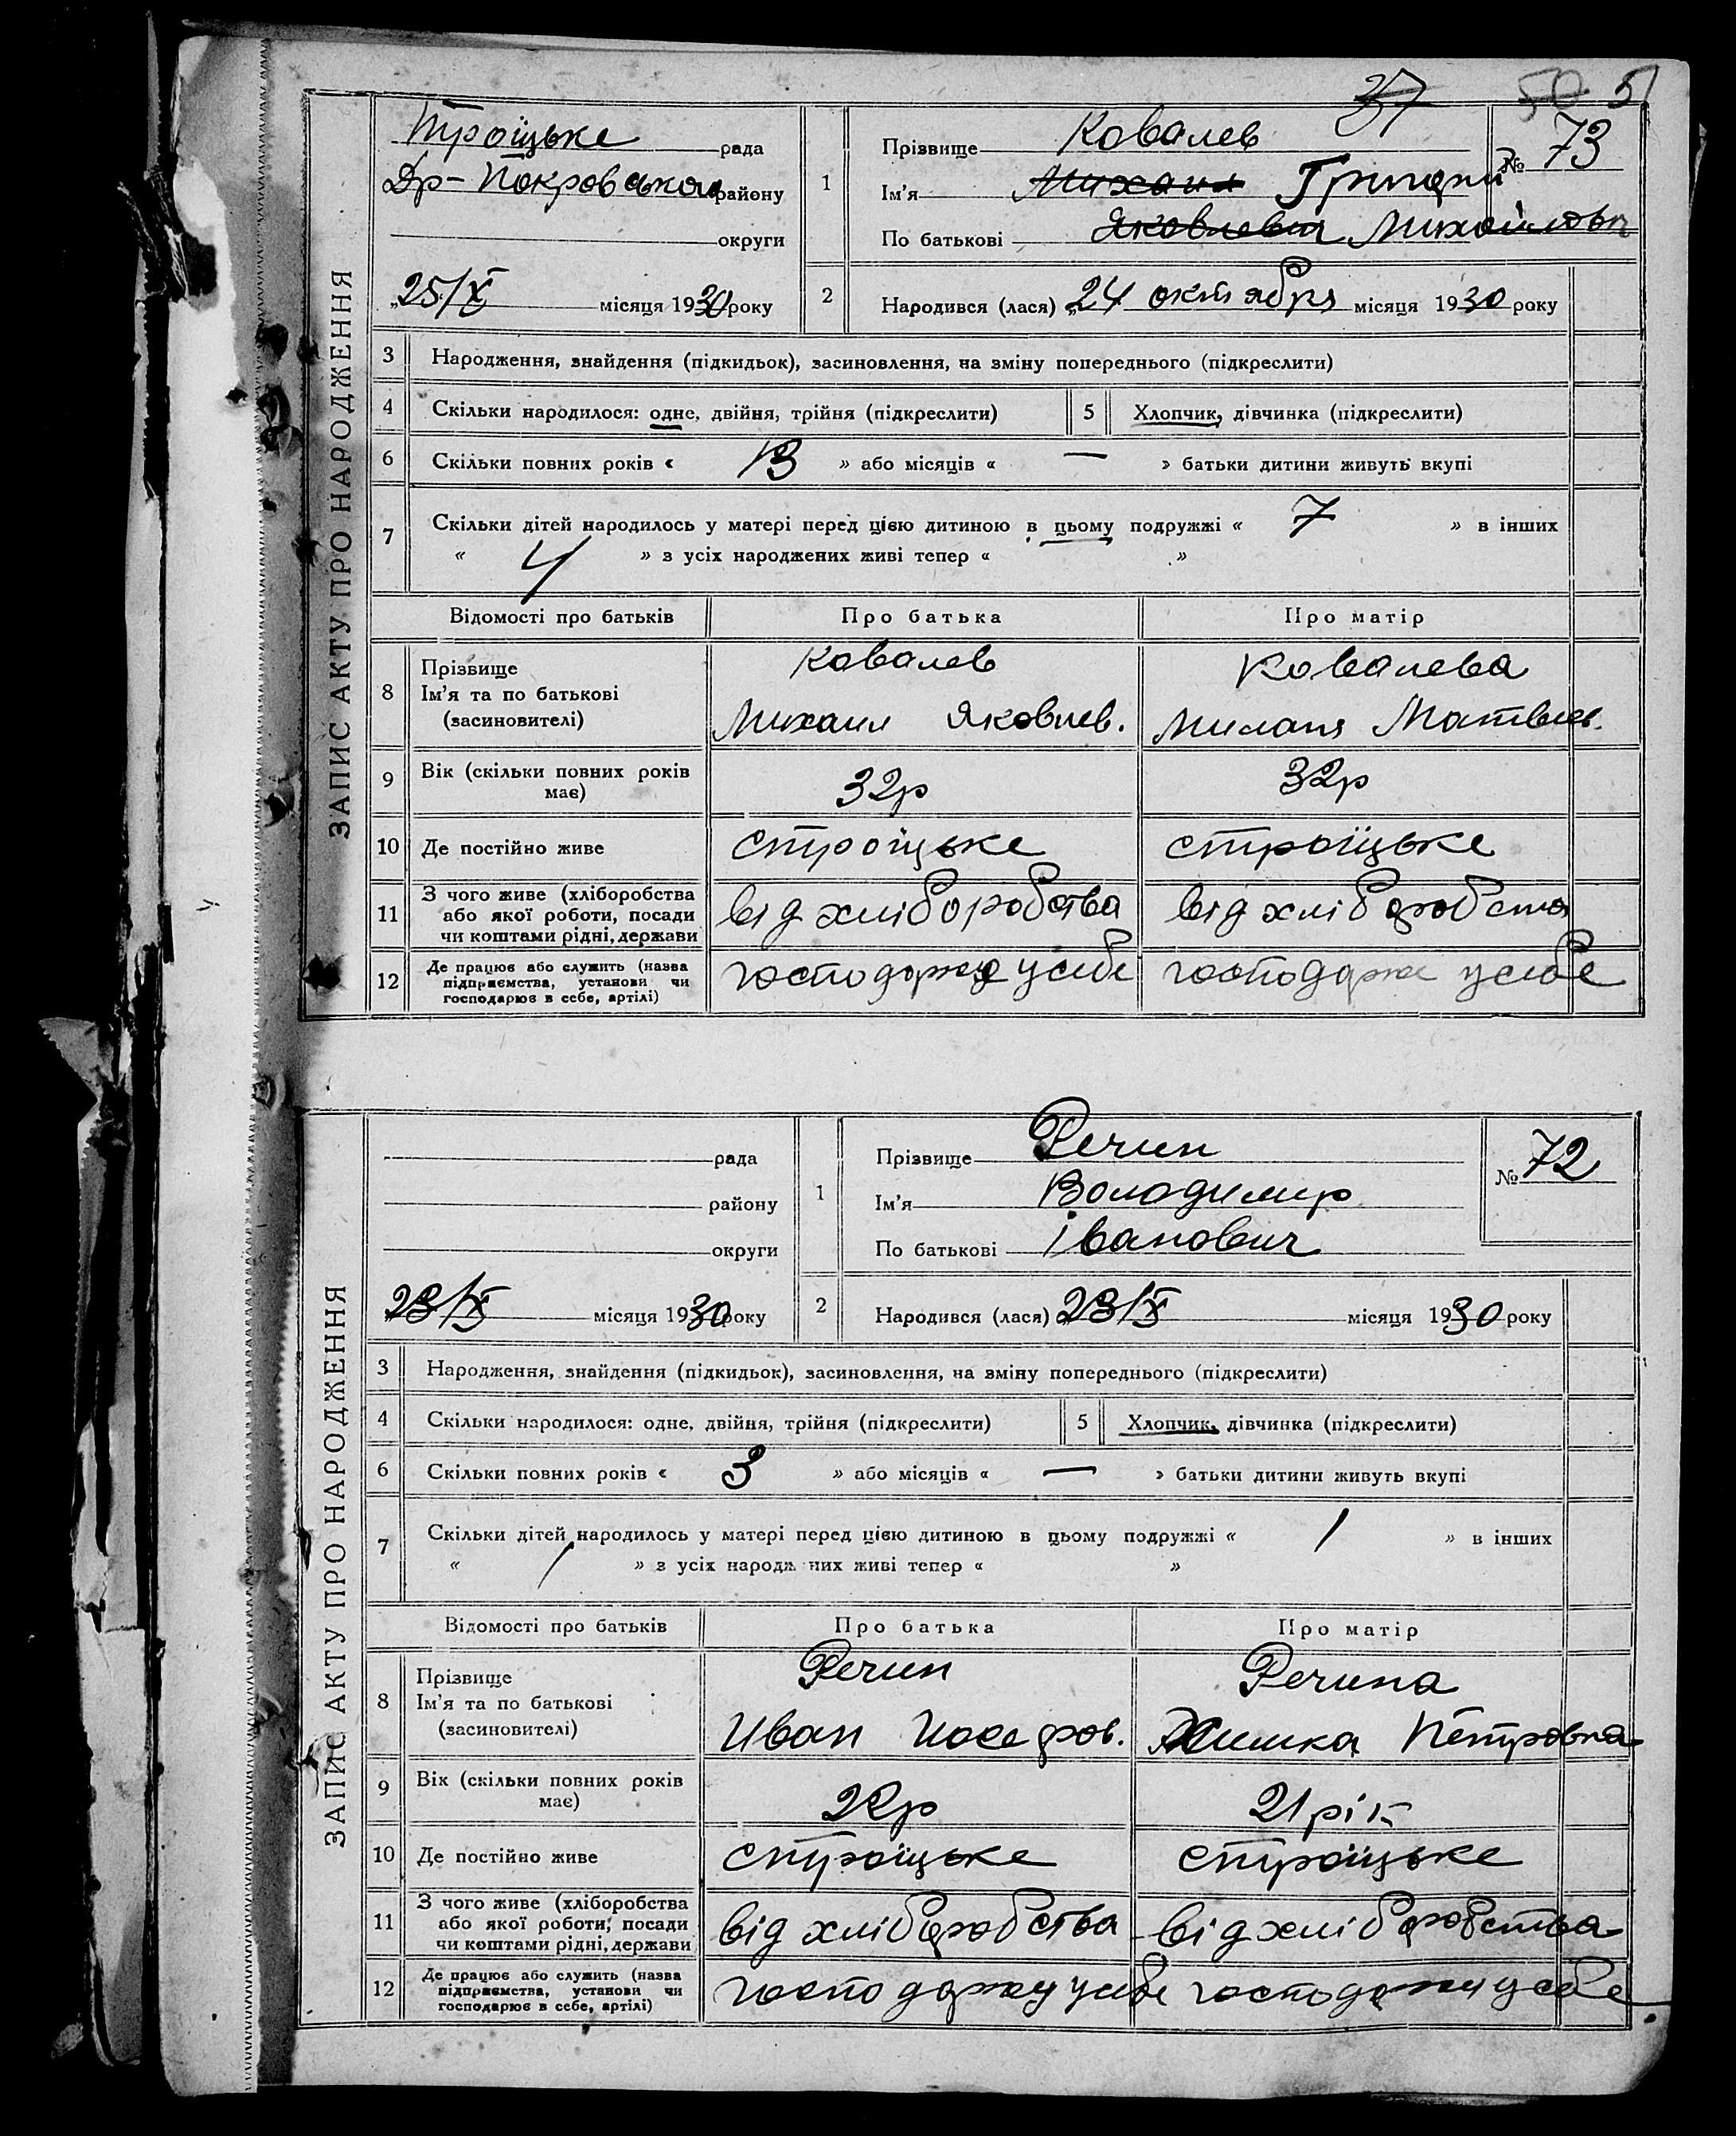 37 50 51
ЗАПИС АКТУ ПРО НАРОДЖЕННЯ
Троїцьке рада
Др-Покровського району
округи
25/X місяця 1930 року
1
Прізвище Ковалев
Ім'я Михаил Григорий
По батькові Яковлевич Михайлович
№ 73
2
Народився (лася) „24 октября місяця 1930 року
3 Народження, знайдення (підкидьок), засиновлення, на зміну попереднього (підкреслити)
4 Скільки народилося: одне, двійня, трійня (підкреслити) 5 Хлопчик, дівчинка (підкреслити)
6 Скільки повних років « 13 » або місяців « — » батьки дитини живуть вкупі
7 Скільки дітей народилось у матері перед цією дитиною в цьому подружжі « 7 » в інших
« 4 » з усіх народжених живі тепер « »
Відомості про батьків Про батька Про матір
8 Прізвище Ковалев Ковалева
Ім'я та по батькові
(засиновителі) Михаил Яковлев. Миланя Матвіев.
9 Вік (скільки повних років
має) 32р 32р
10 Де постійно живе строїцьке строїцьке
11 З чого живе (хліборобства
або якої роботи, посади від хліборобства від хліборобства
чи коштами рідні, держави
12 Де працює або служить (назва
підприємства, установи чи господарже у себе господарже у себе
господарює в себе, артілі)
ЗАПИС АКТУ ПРО НАРОДЖЕННЯ
рада
району
округи
23/X місяця 1930 року
1
Прізвище Речин
Ім'я Володимир
По батькові Іванович
№ 72
2
Народився (лася) „23/X місяця 1930 року
3 Народження, знайдення (підкидьок), засиновлення, на зміну попереднього (підкреслити)
4 Скільки народилося: одне, двійня, трійня (підкреслити) 5 Хлопчик, дівчинка (підкреслити)
6 Скільки повних років « 3 » або місяців « — » батьки дитини живуть вкупі
7 Скільки дітей народилось у матері перед цією дитиною в цьому подружжі « 1 » в інших
« 1 » з усіх народж них живі тепер « »
Відомості про батьків Про батька Про матір
8 Прізвище Речин Речина
Ім'я та по батькові
(засиновителі) Иван Иосефов. Петровна
9 Вік (скільки повних років
має) 22р 21рік
10 Де постійно живе строїцьке строїцьке
11 З чого живе (хліборобства
або якої роботи, посади від хліборобства від хліборобства
чи коштами рідні, держави
12 Де працює або служить (назва
підприємства, установи чи господаржу у себе господаржу у себе
господарює в себе, артілі)